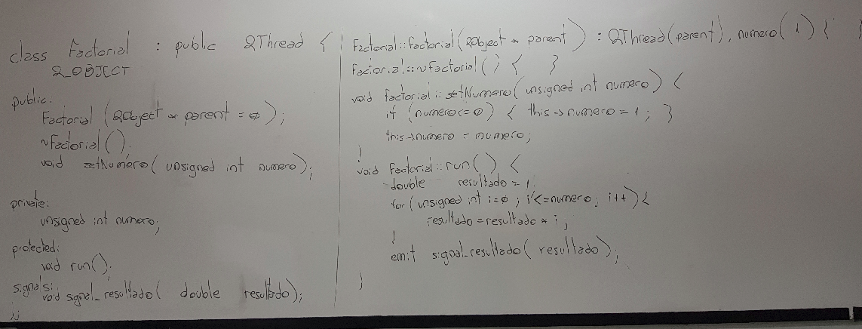 class Factorial : public QThread {
Q_OBJECT
public:
Factorial (QObject * parent = 0);
~Factorial();
void setNumero( unsigned int numero);
private:
unsigned int numero;
protected:
void run();
signals:
void signal_resultado( double resultado);
};
Factorial::Factorial(QObject * parent) : QThread(parent), numero(1) { }
Factorial::~Factorial() { }
void Factorial::setNumero(unsigned int numero) {
if (numero<=0) { this->numero=1; }
this->numero=numero;
}
void Factorial::run() {
double resultado=1;
for(unsigned int i=0; i<=numero, i++){
resultado=resultado * i;
}
emit signal_resultado( resultado);
}